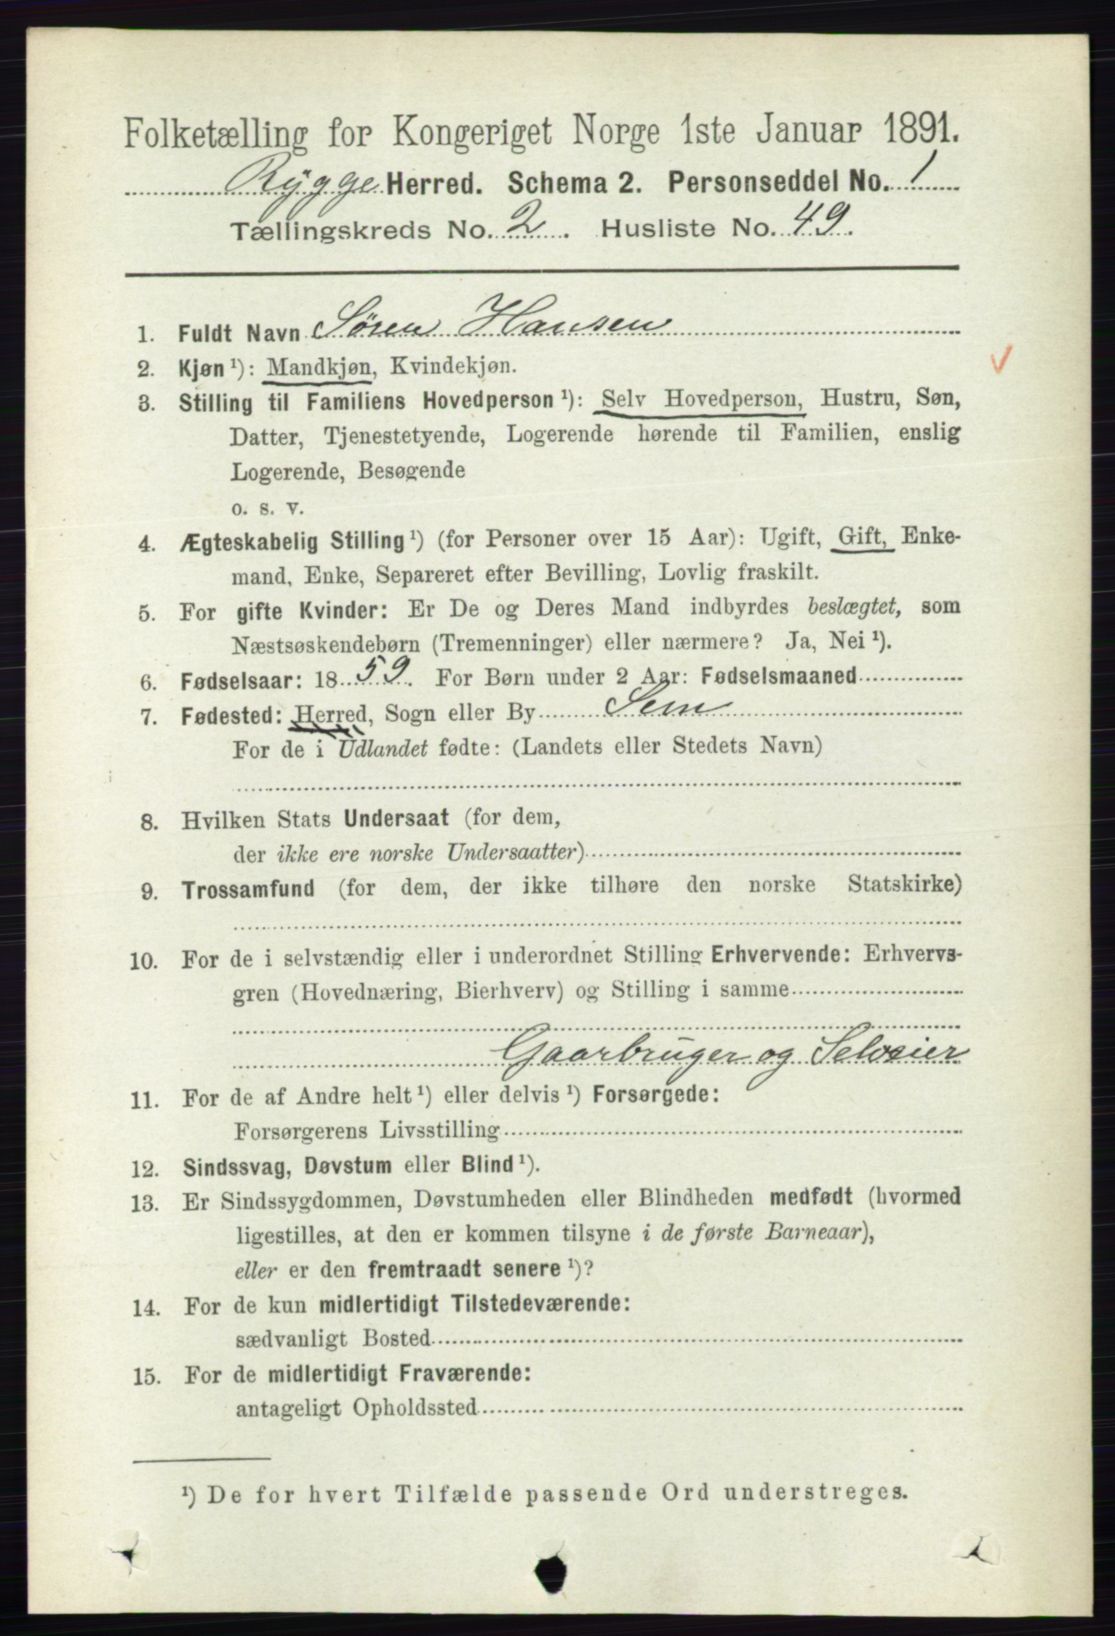 Folketælling for Kongeriget Norge 1ste Januar 1891.
Rygge Herred. Schema 2. Personseddel No. 1
Tællingskreds No. 2. Husliste No. 49.
1. Fuldt Navn Søren Hansen
2. Kjøn ¹): Mandkjøn, Kvindekjøn.
3. Stilling til Familiens Hovedperson ¹): Selv Hovedperson, Hustru, Søn,
Datter, Tjenestetyende, Logerende hørende til Familien, enslig
Logerende, Besøgende
o. s. v.
4. Ægteskabelig Stilling ¹) (for Personer over 15 Aar): Ugift, Gift, Enke-
mand, Enke, Separeret efter Bevilling, Lovlig fraskilt.
5. For gifte Kvinder: Er De og Deres Mand indbyrdes beslægtet, som
Næstsøskendebørn (Tremenninger) eller nærmere? Ja, Nei ¹).
6. Fødselsaar: 1859. For Børn under 2 Aar: Fødselsmaaned
7. Fødested: Herred, Sogn eller By Sem
For de i Udlandet fødte: (Landets eller Stedets Navn)
8. Hvilken Stats Undersaat (for dem,
der ikke ere norske Undersaatter)
9. Trossamfund (for dem, der ikke tilhøre den norske Statskirke)
10. For de i selvstændig eller i underordnet Stilling Erhvervende: Erhvervs-
gren (Hovednæring, Bierhverv) og Stilling i samme
Gaarbruger og Seloeier
11. For de af Andre helt ¹) eller delvis ¹) Forsørgede:
Forsørgerens Livsstilling
12. Sindssvag, Døvstum eller Blind ¹).
13. Er Sindssygdommen, Døvstumheden eller Blindheden medfødt (hvormed
ligestilles, at den er kommen tilsyne i de første Barneaar),
eller er den fremtraadt senere ¹)?
14. For de kun midlertidigt Tilstedeværende:
sædvanligt Bosted
15. For de midlertidigt Fraværende:
antageligt Opholdssted
¹) De for hvert Tilfælde passende Ord understreges.